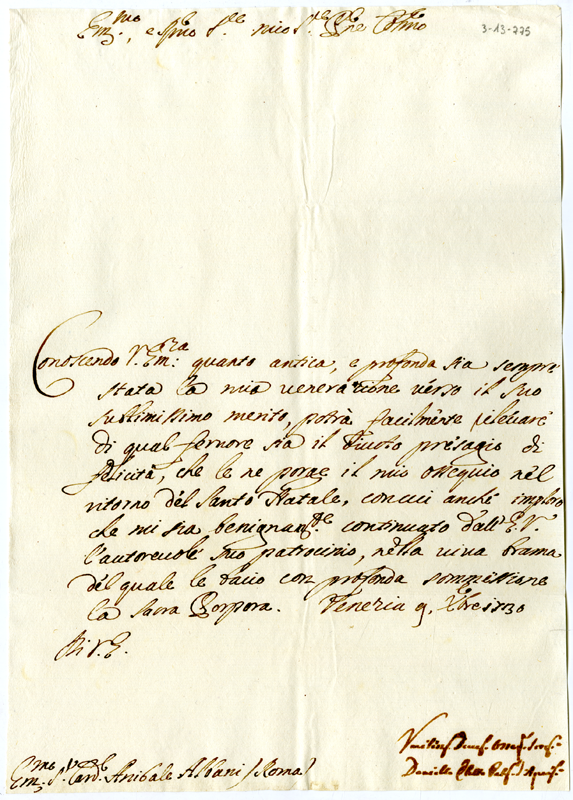 Em.mo, e Rmo S.re mio S.re Pne Colmo
3-13-775
Conoscendo V. Em.za quanto antica, e profonda sia sempre
stata la mia venerazione verso il suo
sublimissimo merito, potrà facilmente rilevare
di qual fervore sia il divoto presagio di
felicità, che le ne porge il mio ossequio nel
ritorno del Santo Natale, con cui anche imploro
che mi sia benignam.te continuato dall' E. V.
l'autorevole suo patrocinio, nella viva brama
del quale le bacio con profonda sommissione
la Sacra Porpora. Venezia 9. Xbre 1730
Di V. E.
Em.mo S.r Card. Anibale Albani (Roma)